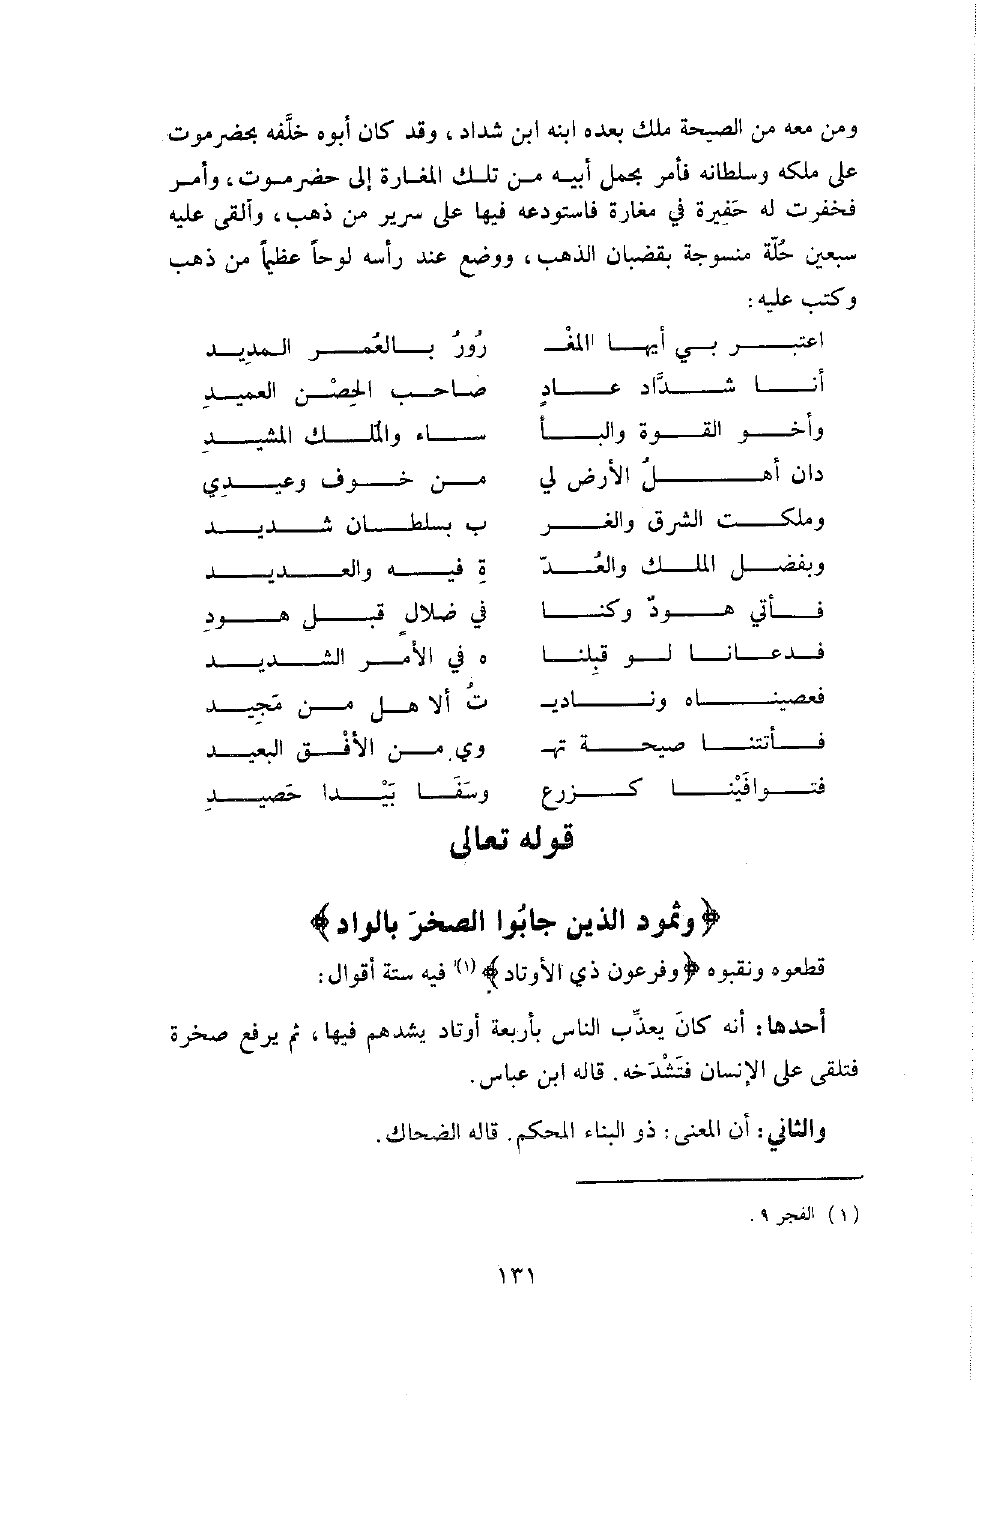 ومن معه من الصيحة ملك بعده ابنه ابن شداد ، وقد كان أبوه خلَّفه بحضرموت
على ملكه وسلطانه فأمر بحمل أبيه من تلك المغارة إلى حضرموت ، وأمر
فحفرت له حَفِيرة في مغارة فاستودعه فيها على سرير من ذهب ، وألقى عليه
سبعين حُلّة منسوجة بقضبان الذهب ، ووضع عند رأسه لوحاً عظيماً من ذهب
وكتب عليه :
اعتبر بي أيها المغْـ رُورُ بالعُمر المديد
أنا شدَّاد عادٍ صاحب الحِصْن العميدِ
وأخو القوة والبأ ساء والمُلك المشيدِ
دان أهلُ الأرض لي من خوف وعيدي
وملكت الشرق والغر ب بسلطان شديد
وبفضل الملك والعُدّ ةِ فيه والعديد
فأتي هودٌ وكنا في ضلالٍ قبل هودِ
فدعانا لو قبِلنا ه في الأمر الشديد
فعصيناه وناديـ تُ ألا هل من مَحِيد
فأتتنا صيحة تهـ وي من الأفْق البعيد
فتوافَيْنا كزرع وسَفَا بَيْدا حَصيدِ
قوله تعالى
﴿وثمود الذين جابُوا الصخرَ بالواد﴾
قطعوه ونقبوه ﴿وفرعون ذي الأوتاد﴾ (١) فيه ستة أقوال :
أحدها : أنه كانَ يعذِّب الناس بأربعة أوتاد يشدهم فيها ، ثم يرفع صخرة
فتلقى على الإنسان فتَشْدَخه . قاله ابن عباس .
والثاني : أن المعنى : ذو البناء المحكم . قاله الضحاك .
(١) الفجر ٩ .
١٣١